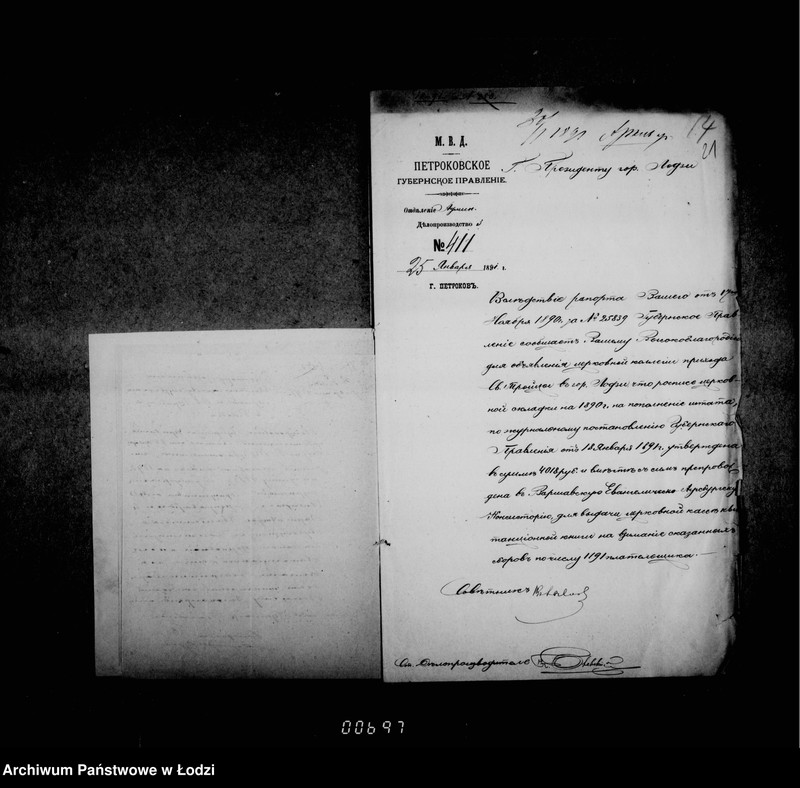 1891
64
21
М. В. Д.
ПЕТРОКОВСКОЕ
ГУБЕРНСКОЕ ПРАВЛЕНІЕ.
Отдѣленіе Админ.
Дѣлопроизводство
№ 411
25 Января 1891 г.
Г. ПЕТРОКОВЪ.
Г. Президенту гор. Лодзи
Вслѣдствіе рапорта Вашего отъ
Ноября 1890 г. за № 25839 Губернское Прав
леніе сообщаетъ Вашему Высокоблагородію
для объявленія церковной коллегіи прихода
Св. Троицы въ гор. Лодзи что роспись церков
ной складки на 1890 г. на пополненіе штата,
по журнальному постановленію Губернскаго
Правленія отъ 18 Января 1891 г. утверждена
въ суммѣ 4018 руб. и вмѣстѣ съ симъ препровож
дена въ Варшавскую Евангелическо Аугсбургскую
Консисторію, для выдачи церковной кассѣ кви
танціонной книги на взиманіе сказанныхъ
сборовъ по числу 1191 плательщика. —
Совѣтникъ
Дѣлопроизводитель
00697
Archiwum Państwowe w Łodzi